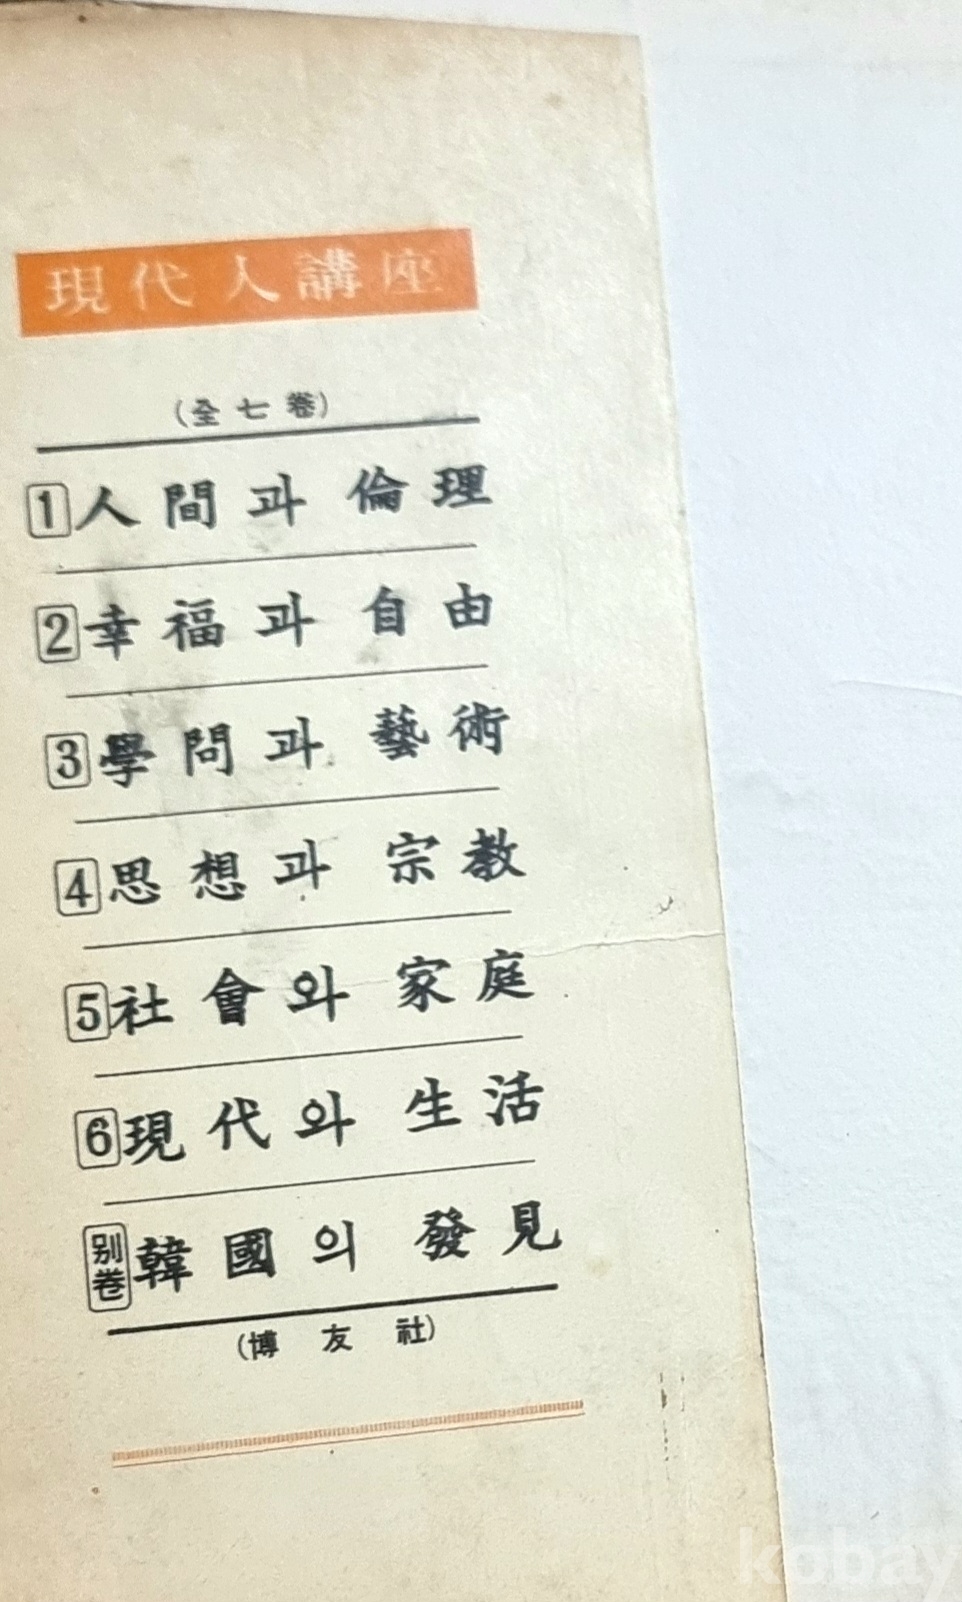 現代人講座
(全七卷)
1 人間과 倫理
2 幸福과 自由
3 學問과 藝術
4 思想과 宗教
5 社會와 家庭
6 現代와 生活
別卷 韓國의 發見
(博友社)
kobay